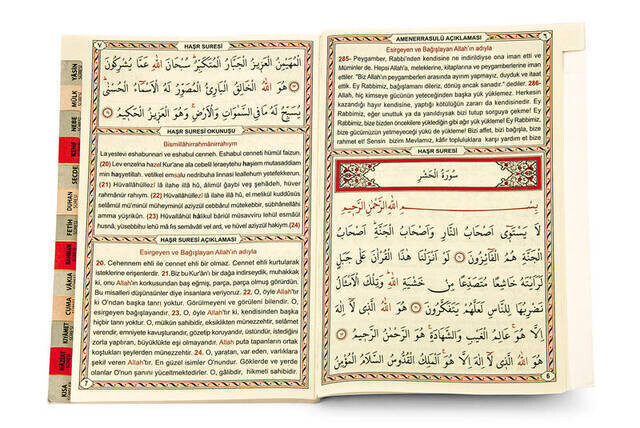 AMENERRASULÜ AÇIKLAMASI
٦
Esirgeyen ve Bağışlayan Allah'ın adıyla
285- Peygamber, Rabbi'nden kendisine ne indirildiyse ona iman etti ve
Müminler de. Hepsi Allah'a, meleklerine, kitaplarına ve peygamberlerine iman
ettiler. "Biz Allah'ın peygamberleri arasında ayırım yapmayız, duyduk ve itaat
ettik. Ey Rabbimiz, bağışlamanı dileriz, dönüş ancak sanadır." dediler. 286-
Allah, hiç kimseye gücünün yeteceğinden başka yük yüklemez. Herkesin
kazandığı hayır kendisine, yaptığı kötülüğün zararı da kendisinedir. Ey
Rabbimiz, eğer unuttuk ya da yanıldıysak bizi tutup sorguya çekme! Ey
Rabbimiz, bize bizden öncekilere yüklediğin gibi ağır yük yükleme! Ey Rabbimiz,
bize gücümüzün yetmeyeceği yükü de yükleme! Bizi affet, bizi bağışla, bize
rahmet et! Sensin bizim Mevlamız, kâfir topluluklara karşı yardım et bize
HAŞR SURESİ
سُورَةُ الْحَشْرِ
بِسْمِ اللّٰهِ الرَّحْمٰنِ الرَّحِيمِ
لَا يَسْتَوِى اَصْحَابُ النَّارِ وَاَصْحَابُ الْجَنَّةِ اَصْحَابُ
الْجَنَّةِ هُمُ الْفَائِزُونَ ۝ لَوْ اَنْزَلْنَا هٰذَا الْقُرْاٰنَ عَلٰى جَبَلٍ
لَرَاَيْتَهُ خَاشِعًا مُتَصَدِّعًا مِنْ خَشْيَةِ اللّٰهِ وَتِلْكَ الْاَمْثَالُ
نَضْرِبُهَا لِلنَّاسِ لَعَلَّهُمْ يَتَفَكَّرُونَ ۝ هُوَ اللّٰهُ الَّذِى لَا اِلٰهَ
اِلَّا هُوَ عَالِمُ الْغَيْبِ وَالشَّهَادَةِ هُوَ الرَّحْمٰنُ الرَّحِيمُ ۝
هُوَ اللّٰهُ الَّذِى لَا اِلٰهَ اِلَّا هُوَ اَلْمَلِكُ الْقُدُّوسُ السَّلَامُ الْمُؤْمِنُ
6
٧
HAŞR SURESİ
الْمُهَيْمِنُ الْعَزِيزُ الْجَبَّارُ الْمُتَكَبِّرُ سُبْحَانَ اللّٰهِ عَمَّا يُشْرِكُونَ
۝ هُوَ اللّٰهُ الْخَالِقُ الْبَارِئُ الْمُصَوِّرُ لَهُ الْاَسْمَاءُ الْحُسْنٰى
يُسَبِّحُ لَهُ مَا فِى السَّمٰوَاتِ وَالْاَرْضِ وَهُوَ الْعَزِيزُ الْحَكِيمُ ۝
HAŞR SURESİ OKUNUŞU
Bismillâhirrahmânirrahıym
La yestevi eshabunnari ve eshabul cenneh. Eshabul cenneti hümül faizun.
(20) Lev enzelna hazel Kur'ane ala cebelil leraeytehu haşiem mutasaddiam
min haşyetillah. vetilkel emsalu nedribuha linnasi leallehum yetefekkerun.
(21) Hüvallâhüllezî lâ ilahe illâ hû, âlimül ğaybi veş şehâdeh, hüver
rahmânür rahıym. (22) Hüvallâhüllezî lâ ilahe illâ hû, el melikül kuddûsüs
selâmül mü'minül müheyminül azîyzül cebbârul mütekebbir, sübhânellâhi
amma yüşrikûn. (23) Hüvallâhül hâlikul bâriül müsavviru lehül esmâul
husnâ, yüsebbihu lehû mâ fis semâvâti vel ard, ve hüvel azîyzül hakiym (24)
HAŞR SURESİ AÇIKLAMASI
Esirgeyen ve Bağışlayan Allah'ın adıyla
20. Cehennem ehli ile cennet ehli bir olmaz. Cennet ehli kurtularak
isteklerine erişenlerdir. 21. Biz bu Kur'ân'ı bir dağa indirseydik, muhakkak
ki, onu Allah'ın korkusundan baş eğmiş, parça, parça olmuş görürdün.
Bu misalleri düşünsünler diye insanlara veriyoruz. 22. O, öyle Allah'tır
ki O'ndan başka tanrı yoktur. Görülmeyeni ve görüleni bilendir. O,
esirgeyen bağışlayandır. 23. O, öyle Allah'tır ki, kendisinden başka
hiçbir tanrı yoktur. O, mülkün sahibidir, eksiklikten münezzehtir, selâmet
verendir, emniyete kavuşturandır, gözetip koruyandır, üstündür, istediğini
zorla yaptıran, büyüklükte eşi olmayandır. Allah puta tapanların ortak
koştukları şeylerden münezzehtir. 24. O, yaratan, var eden, varlıklara
şekil veren Allah'tır. En güzel isimler O'nundur. Göklerde ve yerde
olanlar O'nun şanını yüceltmektedirler. O, gâlibdir, hikmeti sahibidir.
7
YÂSİN
SÛRESİ
MÜLK
SÛRESİ
NEBE
SÛRESİ
KEHF
SECDE
DUHAN
SÛRESİ
FETİH
SÛRESİ
VÂKIA
CUMA
KIYÂMET
NAZİAT
KISA